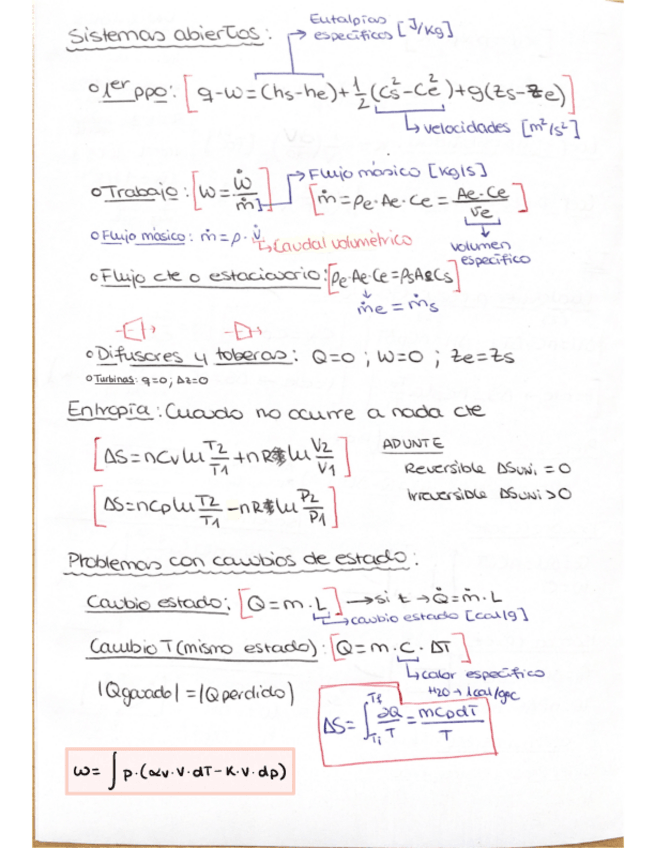 Sistemas abiertos:
Entalpías
específicas [J/Kg]
1er ppo: [q-w=(hs-he)+1/2(Cs²-Ce²)+g(Zs-Ze)]
velocidades [m²/s²]
Trabajo: [w=Ẇ/ṁ]
Flujo másico [Kg/s]
[ṁ=ρe·Ae·Ce=Ae·Ce/Ve]
Flujo másico: ṁ=ρ·V̇
Caudal volumétrico
volumen
específico
Flujo cte o estacionario: [ρe·Ae·Ce=ρsAsCs]
ṁe=ṁs
Difusores y toberas: Q=0; W=0; Ze=Zs
Turbinas: q=0; Δz=0
Entropía: Cuando no ocurre a nada cte
[ΔS=nCv ln T2/T1 + nR ln V2/V1]
[ΔS=nCp ln T2/T1 - nR ln P2/P1]
APUNTE
Reversible ΔSuni=0
Irreversible ΔSuni>0
Problemas con cambios de estado:
Cambio estado: [Q=m·L] → si t → Q̇=ṁ·L
cambio estado [cal/g]
Cambio T (mismo estado): [Q=m·c·ΔT]
calor específico
H2O → 1cal/gºC
|Qganado|=|Qperdido|
ΔS=∫Ti Tf ∂Q/T = mCpdT/T
w=∫p·(αv·V·dT-K·V·dp)